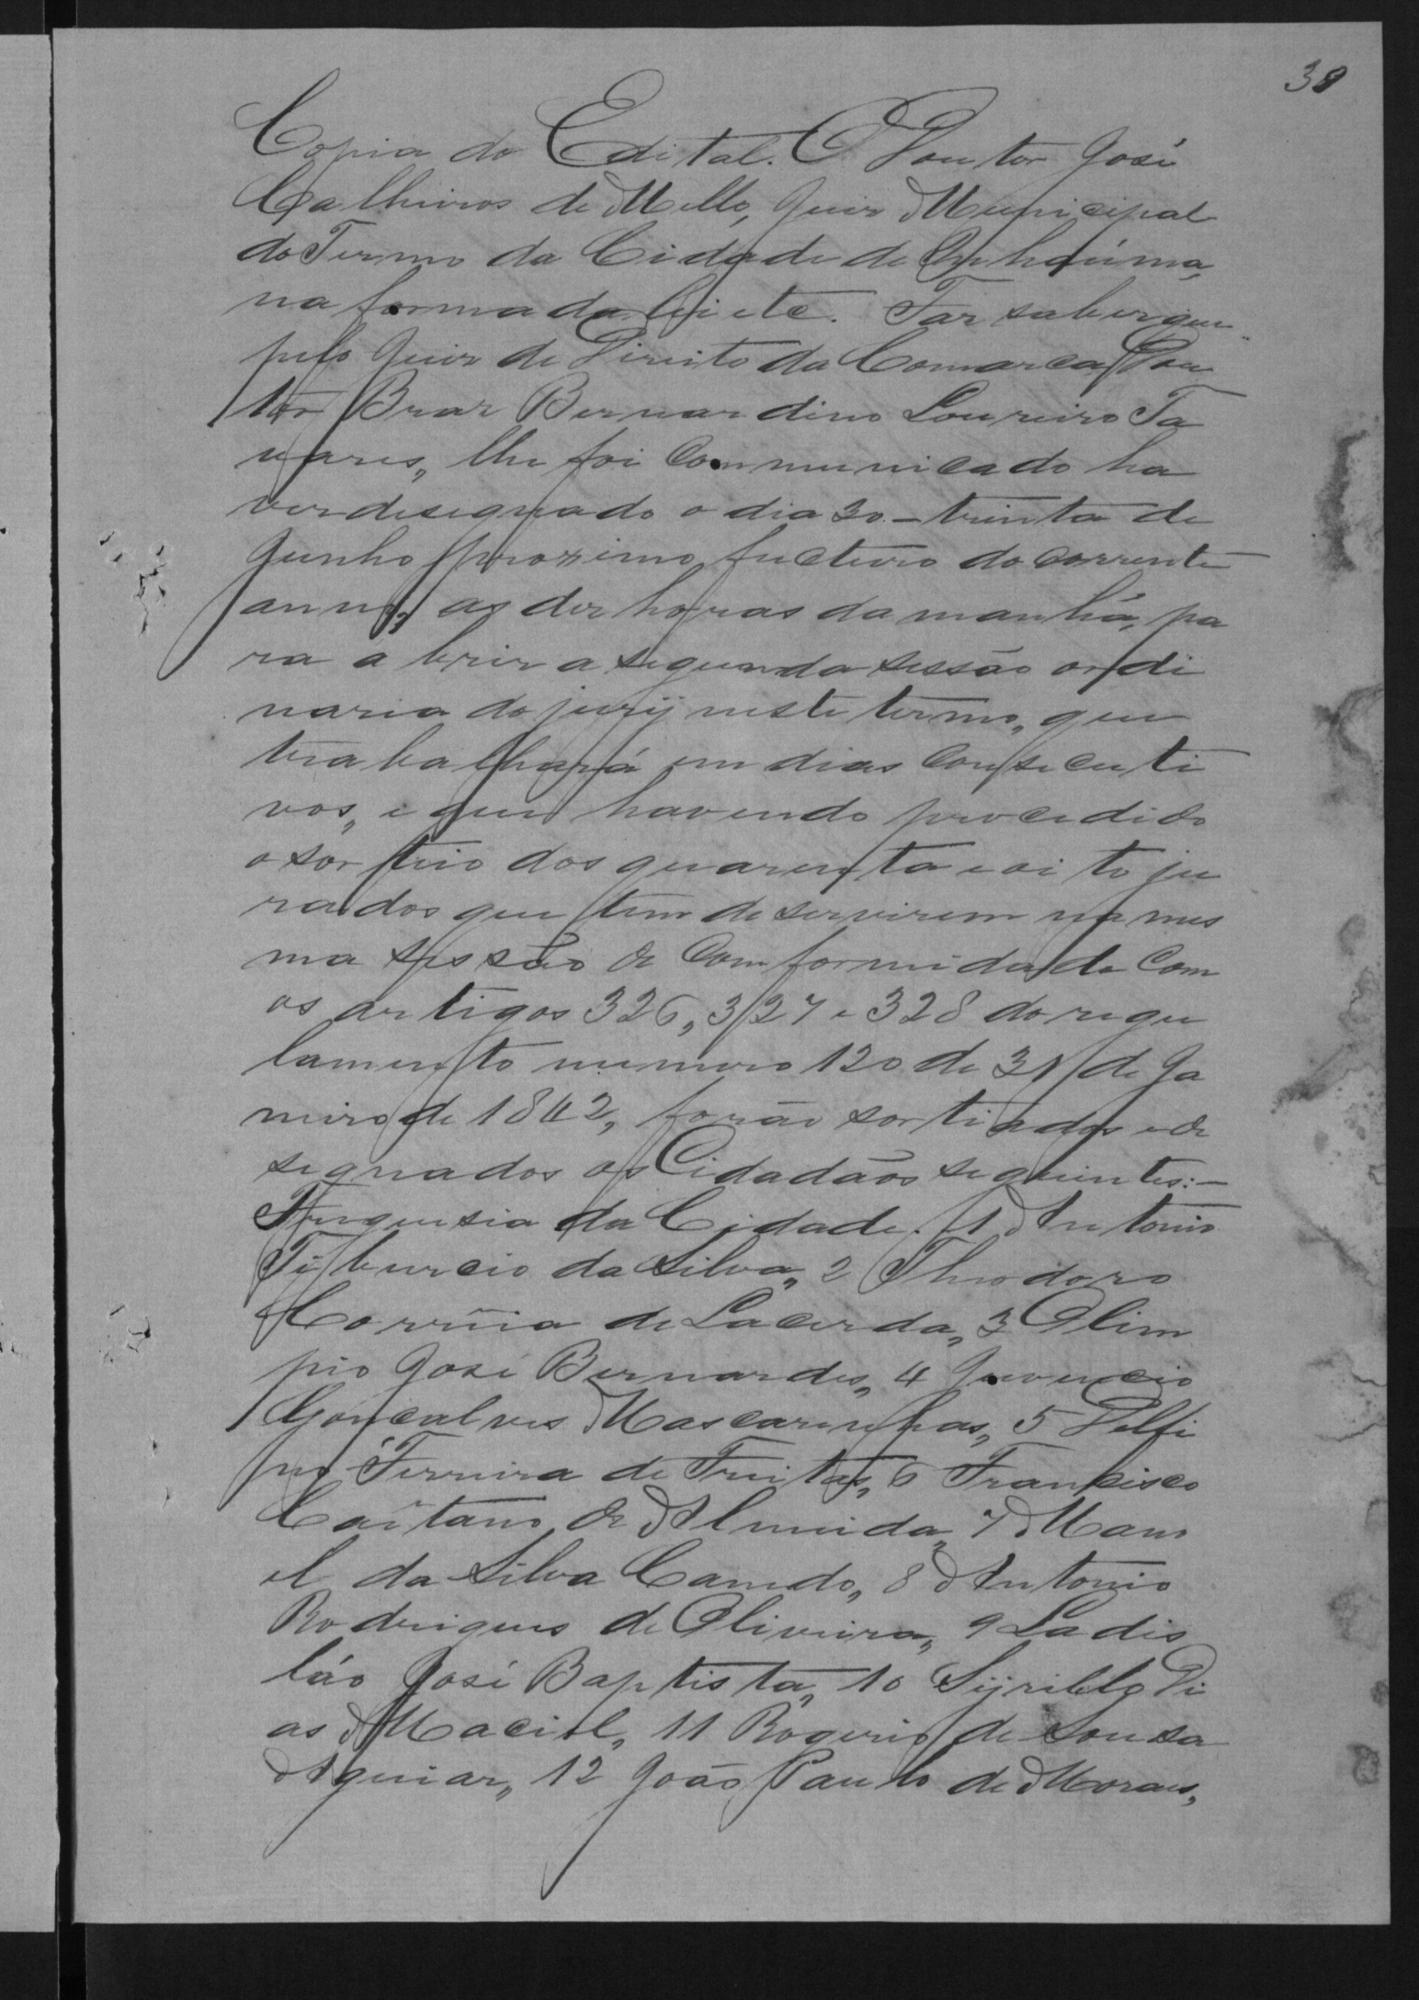 39
Copia do Edital. O Doutor José
Calheiros de Mello, Juiz Municipal
do Termo da Cidade de Inhaúma,
na forma da lei etc. Faz saber que
pelo Juiz de Direito da Comarca Dou
tor Braz Bernardino Loureiro Ta
vares, lhe foi communicado ha
ver desegnado o dia 30 - trinta de
Junho proximo fucturo do corrente
anno, as dez horas da manhã, pa
ra abrir a segunda sessão ordi
naria do jury neste termo, que
trabalhará em dias consecuti
vos, e que havendo procedido
o sorteio dos quarenta e oito ju
rados que tem de servirem na mes
ma sessão de comformidade com
os artigos 326, 327 e 328 do regu
lamento numero 120 de 31 de Ja
neiro de 1842, forão sortiados e de
segnados os Cidadãos seguintes: -
Freguesia da Cidade. 1 Antonio
Tiburcio da Silva, 2 Theodoro
Corrêia de Lacerda, 3 Olim
pio José Bernardes, 4 Juvencio
Gonçalves Mascarenhas, 5 Delfi
no Ferreira de Freitas, 6 Francisco
Caitano de Almeida, 7 Mano
el da Silva Canedo, 8 Antonio
Rodrigues de Oliveira, 9 Ladis
láo José Baptista, 10 Syrillo Di
as Maciel, 11 Rogerio de Sousa
Aguiar, 12 João Paulo de Moraes,